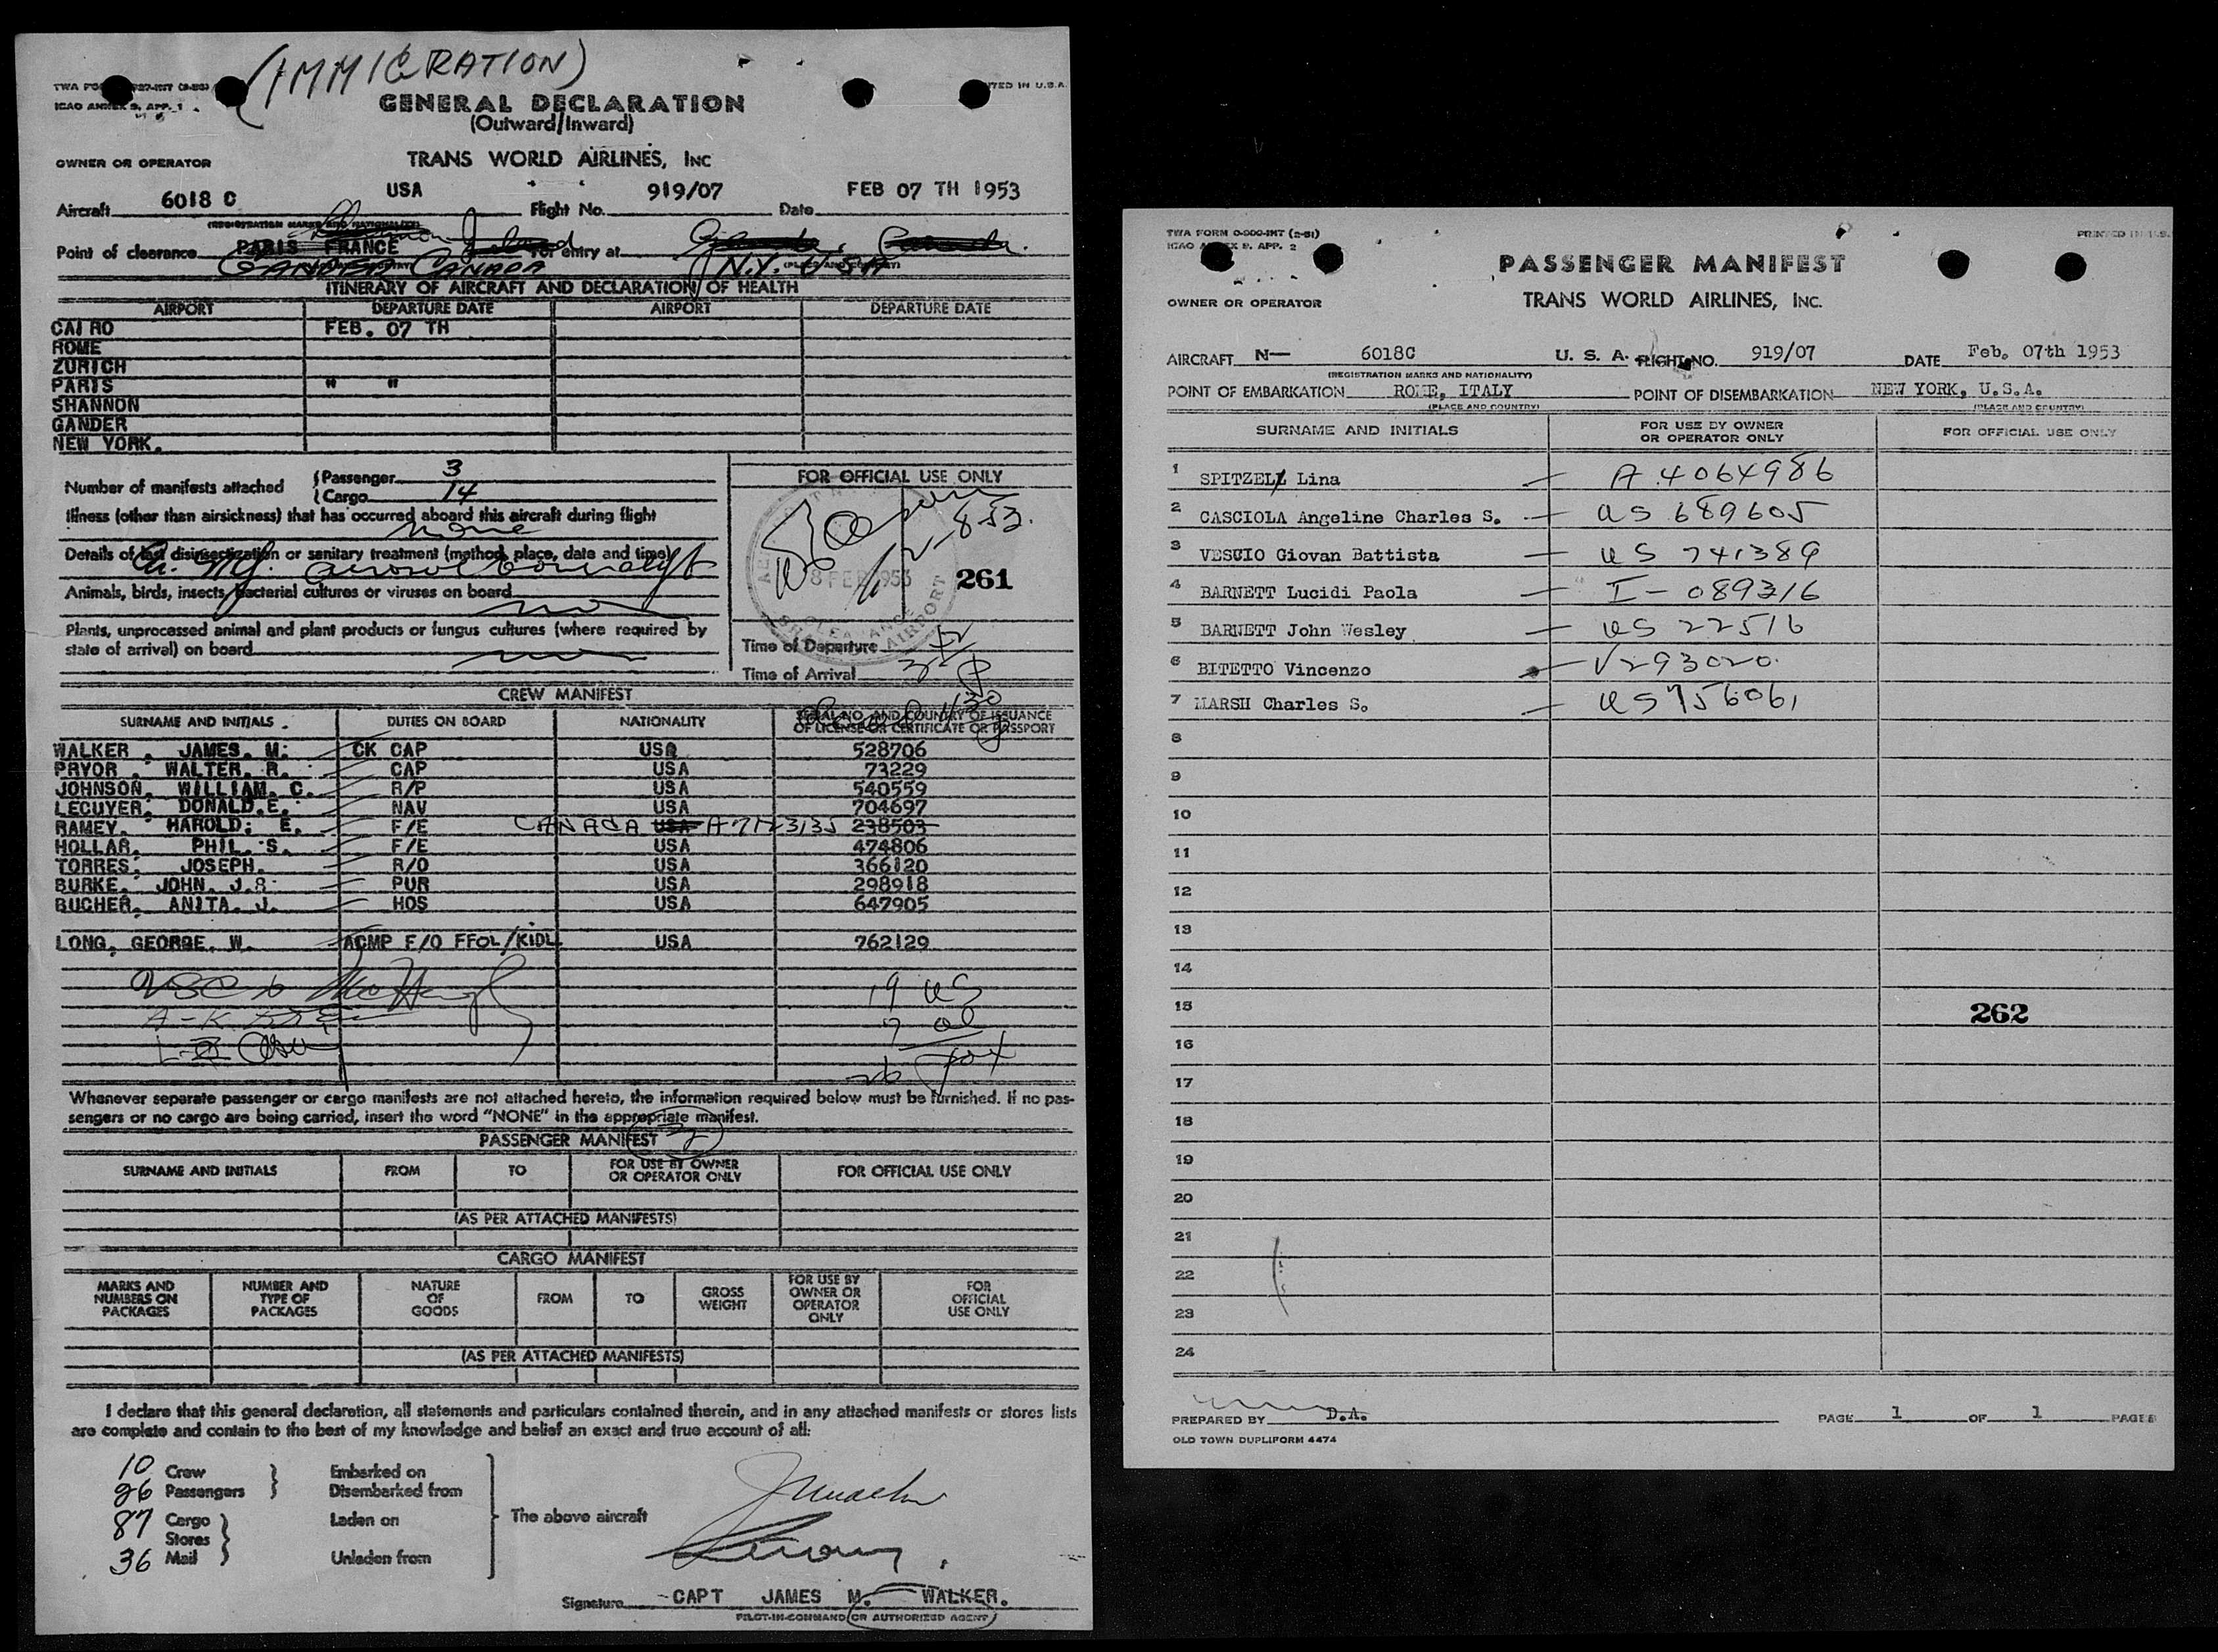 (IMMIGRATION)
ICAO ANNEX 9, APP. 1
GENERAL DECLARATION
(Outward/Inward)
OWNER OR OPERATOR TRANS WORLD AIRLINES, INC
Aircraft 6018 C USA Flight No. 919/07 Date FEB 07 TH 1953
(REGISTRATION MARKS AND NATIONALITY)
Point of clearance PARIS FRANCE For entry at
GANDER CANADA N.Y. USA
ITINERARY OF AIRCRAFT AND DECLARATION OF HEALTH
AIRPORT DEPARTURE DATE AIRPORT DEPARTURE DATE
CAIRO FEB. 07 TH
ROME
ZURICH
PARIS " "
SHANNON
GANDER
NEW YORK.
Number of manifests attached
Passenger 3
Cargo 14
Illness (other than airsickness) that has occurred aboard this aircraft during flight
none
Details of last disinsectization or sanitary treatment (method, place, date and time)
Animals, birds, insects, bacterial cultures or viruses on board no
Plants, unprocessed animal and plant products or fungus cultures (where required by
state of arrival) on board
FOR OFFICIAL USE ONLY
8 FEB 1953
SHANNON AIRPORT
261
Time of Departure
Time of Arrival
CREW MANIFEST
SURNAME AND INITIALS DUTIES ON BOARD NATIONALITY SERIAL NO. AND COUNTRY OF ISSUANCE OF LICENSE OR CERTIFICATE OR PASSPORT
WALKER, JAMES. M. CK CAP USA 528706
PRYOR, WALTER. R. CAP USA 73229
JOHNSON, WILLIAM. C. R/P USA 540559
LECUYER, DONALD.E. NAV USA 704697
RAMEY, HAROLD. E. F/E CANADA USA A7123135 238503
HOLLAR, PHIL. S. F/E USA 474806
TORRES, JOSEPH. R/O USA 366120
BURKE, JOHN. J.S. PUR USA 298918
BUCHER, ANITA. J. HOS USA 647905
LONG, GEORGE. W. ACMP F/O FFOL/KIDL USA 762129
19 US
7 al
26
Whenever separate passenger or cargo manifests are not attached hereto, the information required below must be furnished. If no pas-
sengers or no cargo are being carried, insert the word "NONE" in the appropriate manifest.
PASSENGER MANIFEST
SURNAME AND INITIALS FROM TO FOR USE BY OWNER OR OPERATOR ONLY FOR OFFICIAL USE ONLY
(AS PER ATTACHED MANIFESTS)
CARGO MANIFEST
MARKS AND NUMBERS ON PACKAGES NUMBER AND TYPE OF PACKAGES NATURE OF GOODS FROM TO GROSS WEIGHT FOR USE BY OWNER OR OPERATOR ONLY FOR OFFICIAL USE ONLY
(AS PER ATTACHED MANIFESTS)
I declare that this general declaration, all statements and particulars contained therein, and in any attached manifests or stores lists
are complete and contain to the best of my knowledge and belief an exact and true account of all:
10 Crew Embarked on
26 Passengers Disembarked from
87 Cargo Laden on The above aircraft
Stores
36 Mail Unladen from
Signature CAPT JAMES M. WALKER.
PILOT-IN-COMMAND (OR AUTHORIZED AGENT)
TWA FORM O-900-INT (2-51)
ICAO ANNEX 9, APP. 2
PASSENGER MANIFEST
OWNER OR OPERATOR TRANS WORLD AIRLINES, INC.
AIRCRAFT N— 6018C U. S. A. FLIGHT NO. 919/07 DATE Feb. 07th 1953
(REGISTRATION MARKS AND NATIONALITY)
POINT OF EMBARKATION ROME, ITALY POINT OF DISEMBARKATION NEW YORK, U.S.A.
(PLACE AND COUNTRY) (PLACE AND COUNTRY)
SURNAME AND INITIALS FOR USE BY OWNER OR OPERATOR ONLY FOR OFFICIAL USE ONLY
1 SPITZELL Lina — A 4064986
2 CASCIOLA Angeline Charles S. — US 689605
3 VESCIO Giovan Battista — US 741389
4 BARNETT Lucidi Paola — I-089316
5 BARNETT John Wesley — US 22516
6 BITETTO Vincenzo — V293020
7 MARSH Charles S. — US 756061
8
9
10
11
12
13
14
15 262
16
17
18
19
20
21
22
23
24
PREPARED BY D.A. PAGE 1 OF 1 PAGES
OLD TOWN DUPLIFORM 4474